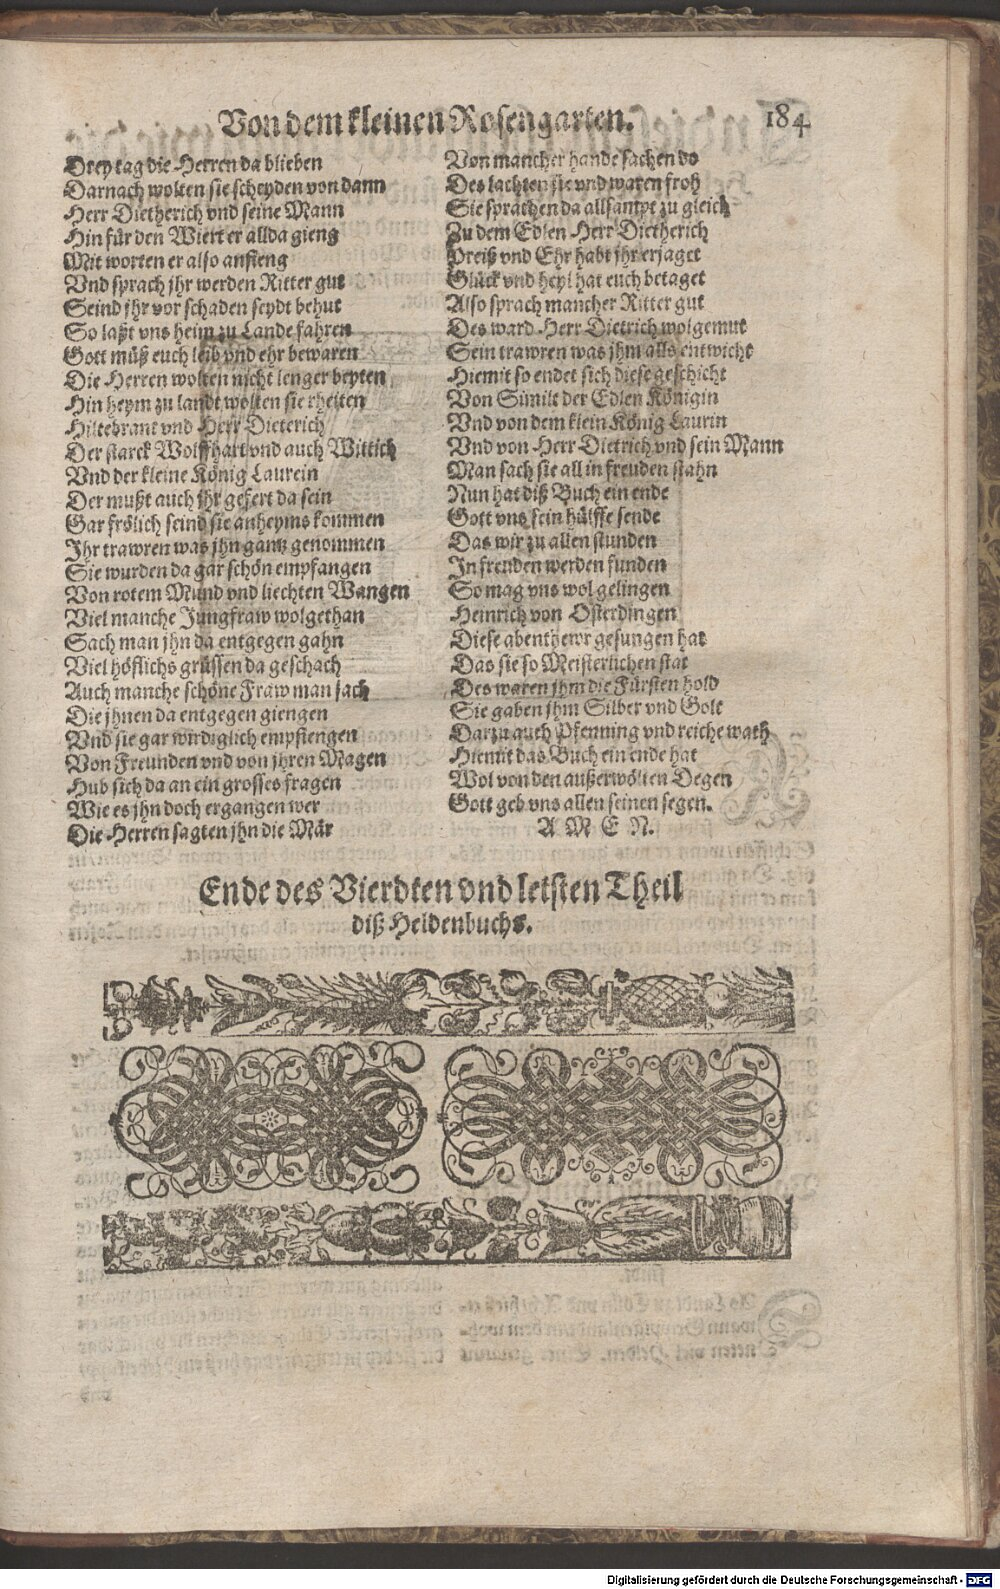 Von dem kleinen Rosengarten. 184
Drey tag die Herren da blieben
Darnach wolten sie scheyden von dann
Herr Dietherich vnd seine Mann
Hin für den Wiert er allda gieng
Mit worten er also anfieng
Vnd sprach jhr werden Ritter gut
Seind jhr vor schaden seydt behut
So laßt vns heim zu Lande fahren
Gott müß euch leib vnd ehr bewaren
Die Herren wolten nicht lenger beyten
Hin heym zu landt wolten sie rheiten
Hiltebrant vnd Herr Dieterich
Der starck Wolffhart vnd auch Wittich
Vnd der kleine König Laurein
Der mußt auch jhr gefert da sein
Gar frölich seind sie anheyms kommen
Ihr trawren was jhn gantz genommen
Sie wurden da gar schön empfangen
Von rotem Mund vnd liechten Wangen
Viel manche Jungfraw wolgethan
Sach man jhn da entgegen gahn
Viel höflichs grüssen da geschach
Auch manche schöne Fraw man sach
Die jhnen da entgegen giengen
Vnd sie gar wirdiglich empfiengen
Von Freunden vnd von jhren Magen
Hub sich da an ein grosses fragen
Wie es jhn doch ergangen wer
Die Herren sagten jhn die Mär
Von mancher hande sachen do
Des lachten sie vnd waren froh
Sie sprachen da allsampt zu gleich
Zu dem Edlen Herr Dietherich
Preiß vnd Ehr habt jhr erjaget
Glück vnd heyl hat euch betaget
Also sprach mancher Ritter gut
Des ward Herr Dietrich wolgemut
Sein trawren was jhm alls entwicht
Hiemit so endet sich diese geschicht
Von Simile der Edlen Königin
Vnd von dem klein König Laurin
Vnd von Herr Dietrich vnd sein Mann
Man sach sie all in freuden stahn
Nun hat diß Buch ein ende
Gott vns sein hülffe sende
Das wir zu allen stunden
In freuden werden funden
So mag vns wol gelingen
Heinrich von Osterdingen
Diese abenthewr gesungen hat
Das sie so Meisterlichen stat
Des waren jhm die Fürsten hold
Sie gaben jhm Silber vnd Golt
Darzu auch Pfenning vnd reiche wath
Hiemit das Buch ein ende hat
Wol von den außerwölten Degen
Gott geb vns allen seinen segen.
A M E N.
Ende des Vierdten vnd letsten Theil
diß Heldenbuchs.
Digitalisierung gefördert durch die Deutsche Forschungsgemeinschaft - DFG